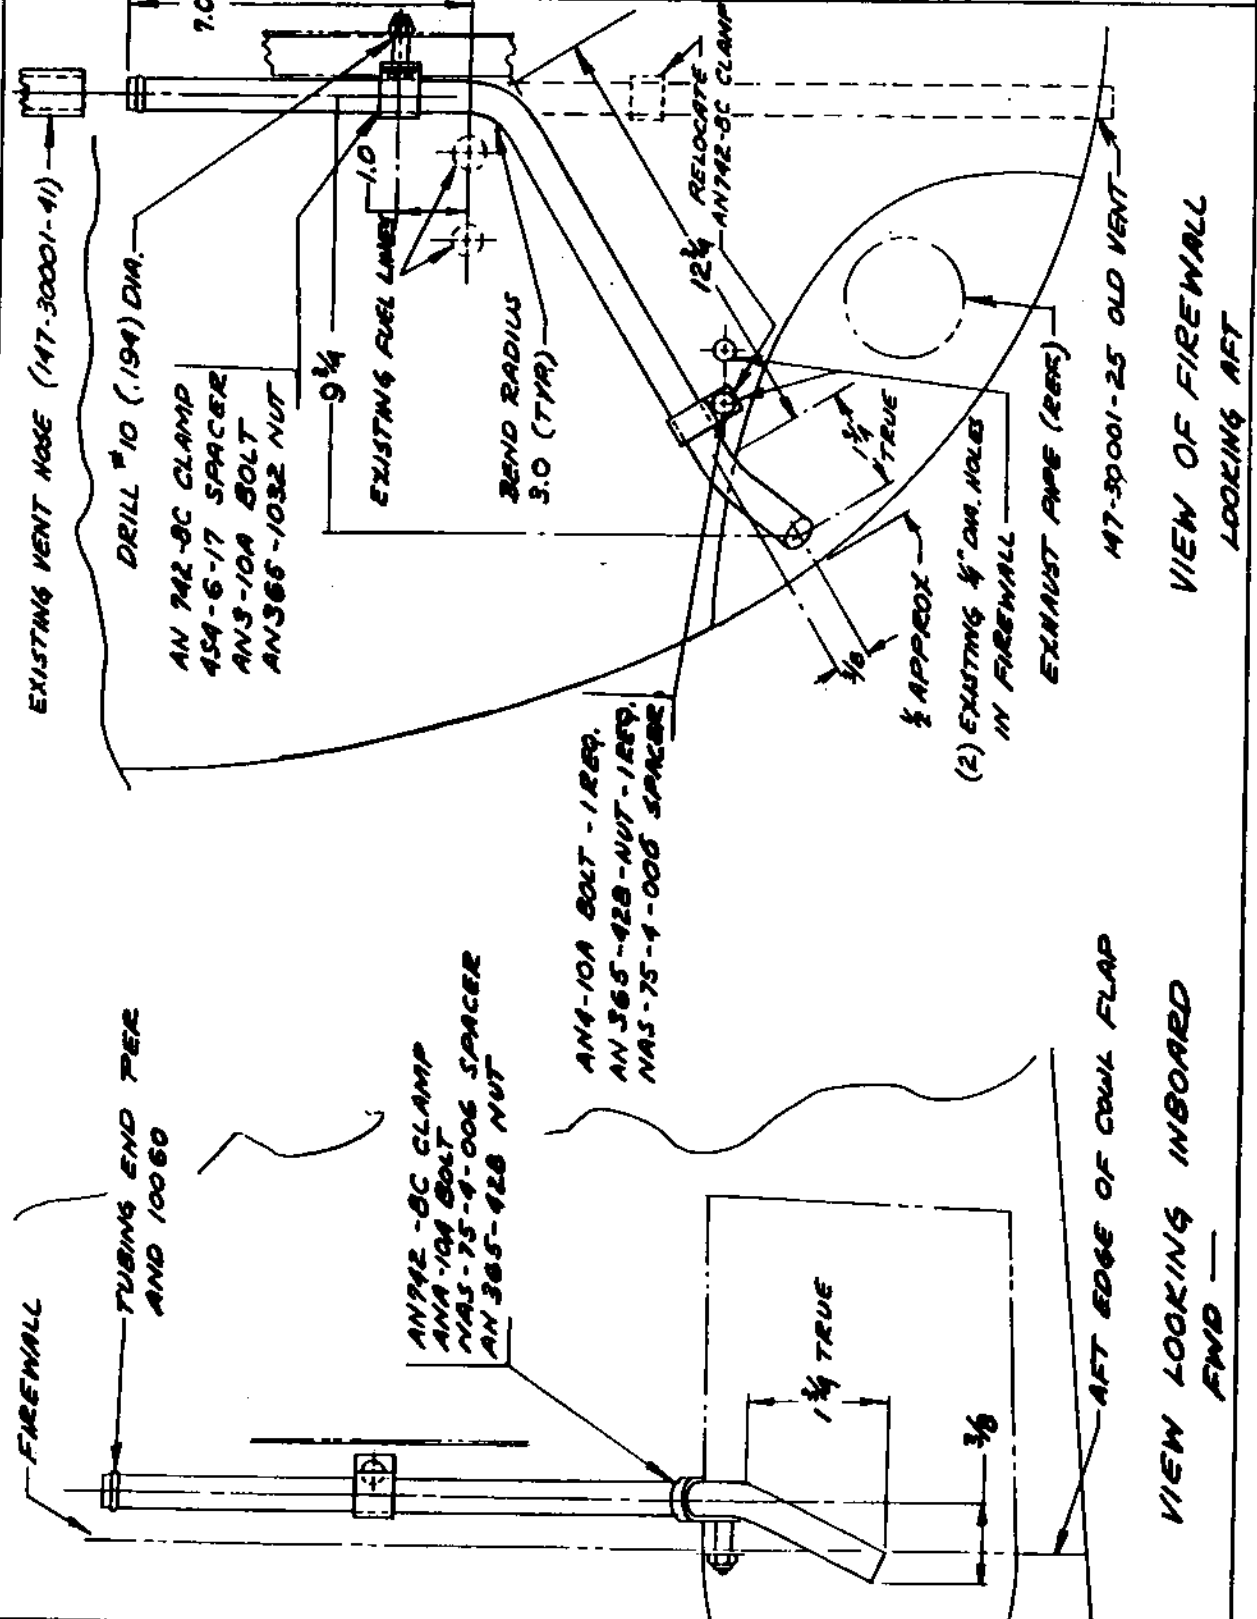 EXISTING VENT HOSE (147-30001-41)
DRILL #10 (.194) DIA.
AN 742-8C CLAMP
454-6-17 SPACER
AN3-10A BOLT
AN365-1032 NUT
9 3/4
7.0
1.0
EXISTING FUEL LINES
BEND RADIUS
3.0 (TYP)
12 3/4
RELOCATE
AN742-8C CLAMP
1 3/4
TRUE
3/8
1/2 APPROX
(2) EXISTING 1/4" DIA. HOLES
IN FIREWALL
EXHAUST PIPE (REF.)
147-30001-25 OLD VENT
VIEW OF FIREWALL
LOOKING AFT
AN4-10A BOLT - 1 REQ.
AN365-428-NUT-1 REQ.
NAS-75-4-006 SPACER
FIREWALL
TUBING END PER
AND 10060
AN742-8C CLAMP
AN4-10A BOLT
NAS-75-4-006 SPACER
AN 365-428 NUT
1 3/4 TRUE
3/8
AFT EDGE OF COWL FLAP
VIEW LOOKING INBOARD
FWD